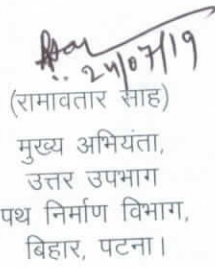 24/07/19
(रामावतार साह)
मुख्य अभियंता,
उत्तर उपभाग
पथ निर्माण विभाग,
बिहार, पटना।